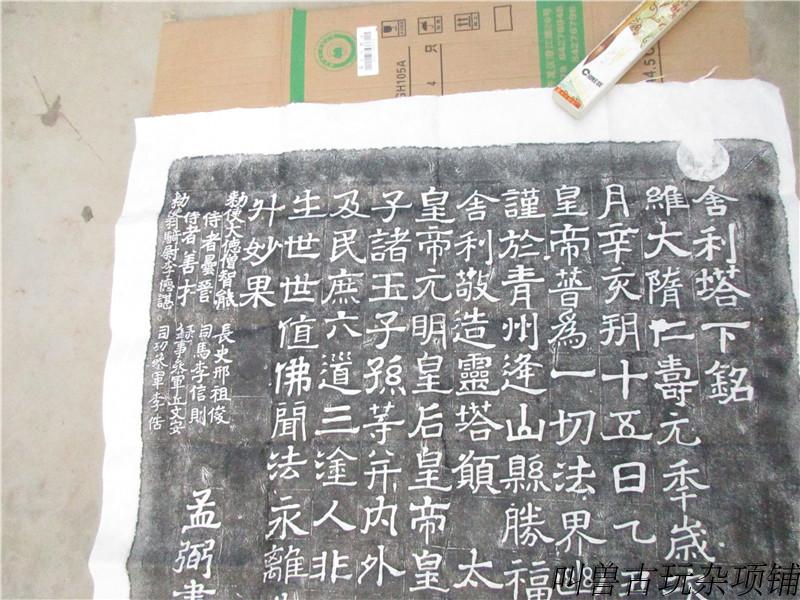 舍利塔下銘
維大隋仁壽元季歳
月辛亥朔十五日乙
皇帝普爲一切法界
謹於青州逄山縣勝福
舍利敬造靈塔願 太
皇帝元明皇后皇帝皇
子諸王子孫等并内外
及民庶六道三塗人非
生世世值佛聞法永離
升妙果
勅使大德僧智能
侍者曇晉
侍者善才
勅使羽騎尉李德諶
長史邢祖俊
司馬李信則
録事參軍丘文安
司功參軍李佸
孟弼書
GH105A
4 只
04276945
04276796
叫兽古玩杂项铺